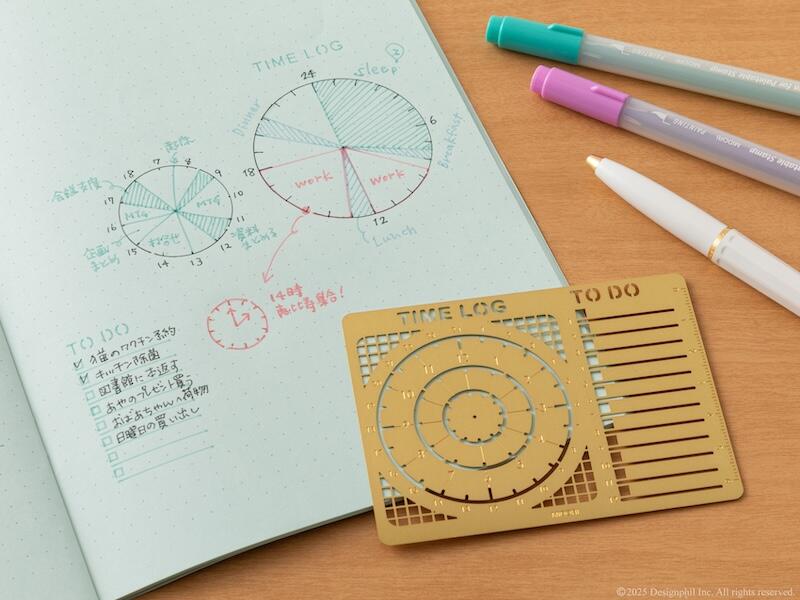 TIME LOG
24
2
sleep
6
Breakfast
Dinner
18
work
work
12
Lunch
起床
7
8
9
10
11
12
13
14
15
16
17
18
会議支度
MTG
MTG
企画
まとめ
打合せ
資料
まとめる
14時
恵比寿集合!
TO DO
猫のワクチン予約
キッチン除菌
図書館にお返す
あやのプレゼント買う
おばあちゃんへ荷物
日曜日の買い出し
TIME LOG
TO DO
MIDORI
PAINTING
MIDORI
PAINTING
MIDORI
©2025 Designphil Inc. All rights reserved.